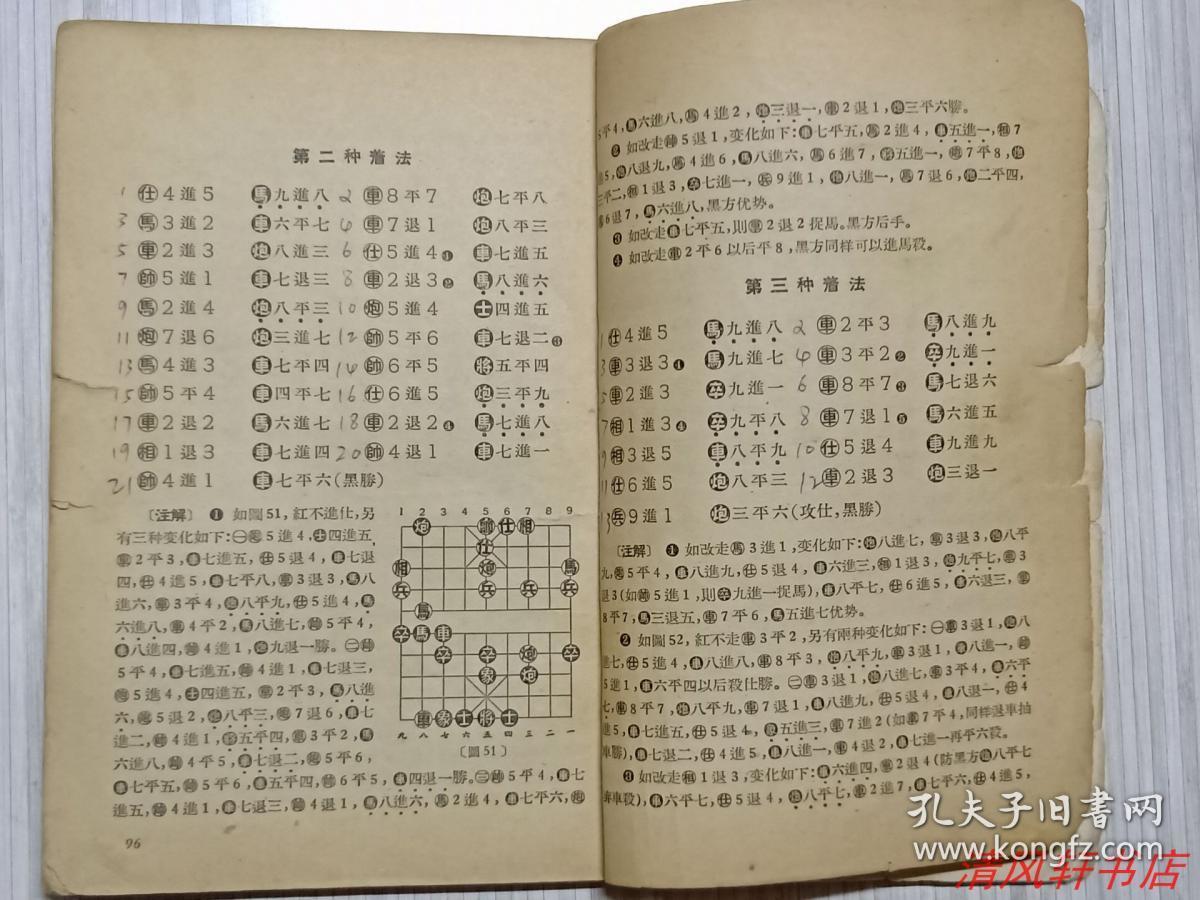 第二种着法
1 仕4進5 馬九進八 2 車8平7 炮七平八
3 馬3進2 車六平七 4 車7退1 炮八平三
5 車2進3 炮八進三 6 仕5進4❶ 車七進五
7 帥5進1 車七退三 8 車2退3❷ 馬八進六
9 馬2進4 炮八平三 10 炮5進4 士四進五
11 炮7退6 炮三進七 12 帥5平6 車七退二❸
13 馬4進3 車七平四 14 帥6平5 將五平四
15 帥5平4 車四平七 16 仕6進5 炮三平九
17 車2退2 馬六進七 18 車2退2❹ 馬七進八
19 相1退3 車七進四 20 帥4退1 車七進一
21 帥4進1 車七平六(黑勝)
〔注解〕❶ 如圖51,紅不進仕,另
有三种变化如下:㊀炮5進4,士四進五,
車2平3,車七進五,仕5退4,車七退
四,仕4進5,車七平八,車3退3,馬八
進六,車3平4,炮八平九,仕5進4,馬
六進八,車4平2,馬八進七,帥5平4,
車八進四,帥4進1,炮九退一勝。㊁帥
5平4,車七進五,帥4進1,車七退三,
炮5進4,士四進五,車2平3,馬八進
六,炮5退2,炮八平三,炮7退6,車七
進二,帥4進1,將五平四,車3平2,馬
六進八,帥4平5,車七退二,炮5平6,
車七平五,帥5平6,車五平四,帥6平5,車四退一勝。㊂帥5平4,車七
進五,帥4進1,車七退三,帥4退1,馬八進六,馬2進4,車七平六,炮
1 2 3 4 5 6 7 8 9
炮 帥 仕 相
仕
相 炮 馬
兵 兵 兵 兵
馬
卒 馬 車
卒 卒 炮 卒
象 炮
車 象 士 將 士
九 八 七 六 五 四 三 二 一
〔圖51〕
96
5平4,馬六進八,馬4進2,炮三退一,車2退1,炮三平六勝。
❷ 如改走帥5退1,变化如下:車七平五,馬2進4,車五進一,相7
進5,炮八退九,馬4進6,馬八進六,馬6進7,將五進一,炮7平8,炮
三平二,相1退3,卒七進一,兵9進1,炮八進一,馬7退6,炮二平四,
馬6退7,馬六進八,黑方优势。
❸ 如改走車七平五,則車2退2捉馬。黑方后手。
❹ 如改走車2平6以后平8,黑方同样可以進馬殺。
第三种着法
1 仕4進5 馬九進八 2 車2平3 馬八進九
3 車3退3❶ 馬九進七 4 車3平2❷ 卒九進一
5 車2進3 卒九進一 6 車8平7❸ 馬七退六
7 相1進3❹ 卒九平八 8 車7退1❺ 馬六進五
9 相3退5 車八平九 10 仕5退4 車九進九
11 仕6進5 炮八平三 12 車2退3 炮三退一
13 兵9進1 炮三平六(攻仕,黑勝)
〔注解〕❶ 如改走馬3進1,变化如下:炮八進七,車3退3,炮八平
九,炮5平4,車八進九,仕5退4,車六進三,相1退3,炮九平七,車
退3(如帥5進1,則卒九進一捉馬),車八平七,仕6進5,車六退三,車
8平7,馬三退五,車7平6,馬五進七优势。
❷ 如圖52,紅不走車3平2,另有兩种变化如下:㊀車3退1,炮八
進七,仕5進4,車八進八,車8平3,炮八平九,車3退1,車八進一,帥
5進1,車六平四以后殺仕勝。㊁車3退1,炮八進七,車3平4,車六平
七,車8平7,炮八平九,車7退1,車八進九,仕5退4,車八退一,仕4
進5,車七進五,仕5退4,炮五進三,車7進2(如車7平4,同样退車抽
車勝),車七退二,仕4進5,車八進一,車4退2,車七進一再平六殺。
❸ 如改走相1退3,变化如下:車六進四,車2退4(防黑方炮八平七
弃車殺),車六平七,仕5退4,炮八平七,車2進7,車七平六,仕4進5,
孔夫子旧书网
www.kongfz.com
清风轩书店